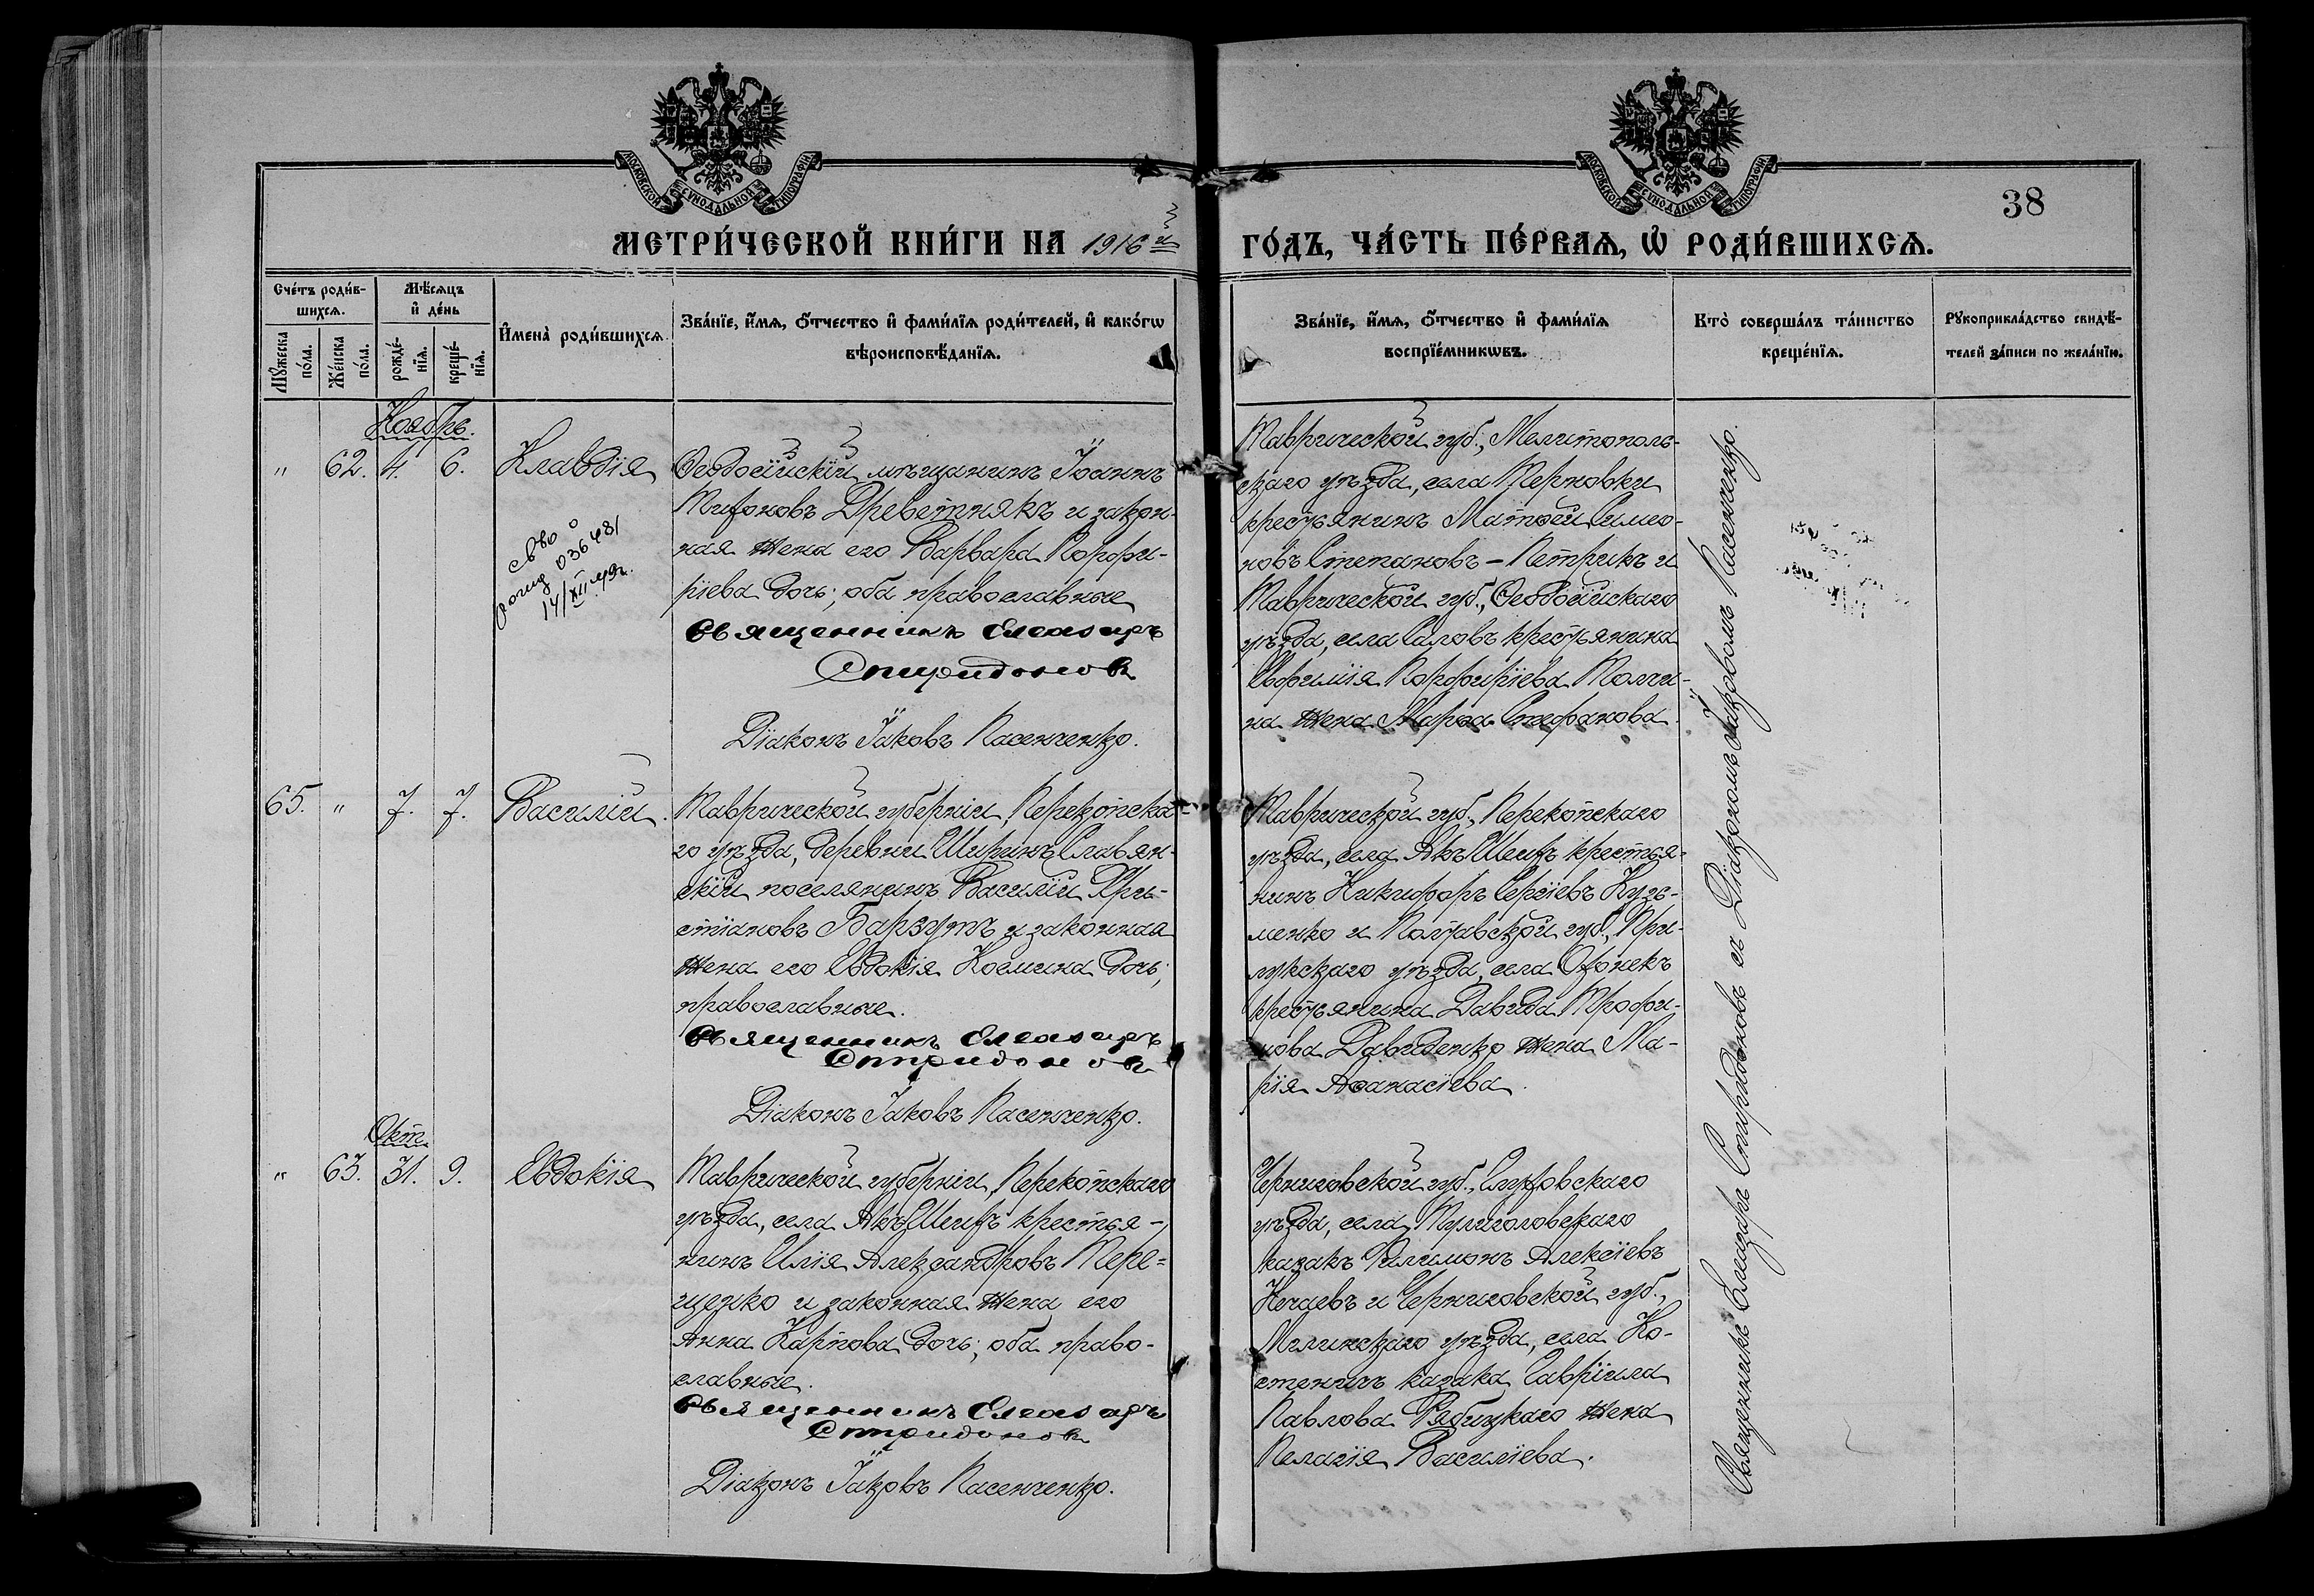 МОСКОВСКОЙ СѴНОДАЛЬНОЙ ТИПОГРАФІИ
МОСКОВСКОЙ СѴНОДАЛЬНОЙ ТИПОГРАФІИ
38
МЕТРИ́ЧЕСКОЙ КНИ́ГИ НА 1916 й
ГО́ДЪ, ЧА́СТЬ ПЕ́РВАѦ, Ѡ҆ РОДИ́ВШИХСѦ.
Сче́тъ роди́в-
шихсѧ.
Мꙋжеска по́ла.
Же́нска по́ла.
Мѣ́сѧцъ
и҆ де́нь
рожде́-нїѧ.
креще́-нїѧ.
И҆мена̀ роди́вшихсѧ.
Зва́нїе, и҆́мѧ, ѻ҆́тчество и҆ фами́лїѧ роди́телей, и҆ како́гѡ
вѣроисповѣ́данїѧ.
Зва́нїе, и҆́мѧ, ѻ҆́тчество и҆ фами́лїѧ
воспрїе́мникѡвъ.
Кто̀ соверша́лъ та́инство
креще́нїѧ.
Рꙋкоприкла́дство свидѣ́-
телей за́писи по жела́нїю.
Ноябрь.
" 62. 4. 6. Клавдія
Ѳеодосійскій мѣщанинъ Іоаннъ
Тихоновъ Древетнякъ и закон-
ная жена его Варвара Порфи-
ріева дочь; оба православные
Священникъ Елеазаръ
Спиридоновъ
Діаконъ Іаковъ Пасенченко.
св-во
036481
14/XII 49г.
Таврической губ., Мелитополь-
скаго уѣзда, села Терновки
крестьянинъ Матѳей Симео-
новъ Степановъ-Петрикъ и
Таврической губ., Ѳеодосійскаго
уѣзда, села крестьянина
Евфимія Порфиріева
жена Марѳа Стефанова.
65. " 7. 7. Василій.
Таврической губерніи, Перекопска-
го уѣзда, деревни Ширинъ Славян-
скій поселянинъ Василій Хри-
стіановъ Барзутъ и законная
жена его Евдокія Космина дочь;
православные.
Священникъ Елеазаръ
Спиридоновъ
Діаконъ Іаковъ Пасенченко.
Таврической губ., Перекопскаго
уѣзда, села Акъ Шеихъ крестья-
нинъ Никифоръ Сергіевъ Кузь-
менко и Полтавской губ., При-
лукскаго уѣзда, села
крестьянина Давида Трофи-
мова Давиденко жена Ма-
рія Аѳанасіева.
Окт.
" 63. 31. 9. Евдокія
Таврической губерніи, Перекопскаго
уѣзда, села Акъ Шеихъ крестья-
нинъ Илія Александровъ Тере-
щенко и законная жена его
Анна Карпова дочь; оба право-
славные.
Священникъ Елеазаръ
Спиридоновъ
Діаконъ Іаковъ Пасенченко.
Черниговской губ.,
уѣзда, села Тулиголовскаго
казакъ Филимонъ Алексіевъ
Нечаевъ и Черниговской губ.,
Мглинскаго уѣзда, села Ко-
стеничъ казака Гавріила
Павлова Рябицкаго жена
Пелагія Василіева.
Священникъ Елеазаръ Спиридоновъ съ Діакономъ Іаковомъ Пасенченко.